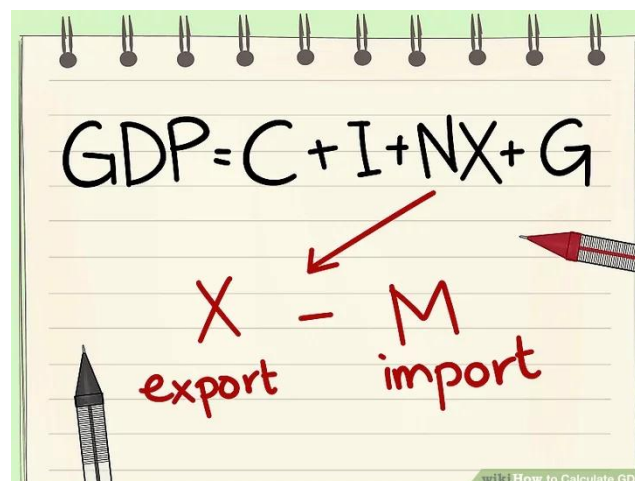 GDP=C+I+NX+G
X - M
export import
wikiHow to Calculate GD